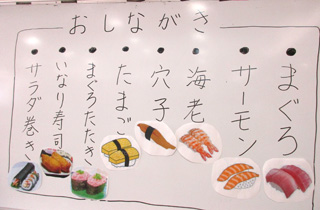 おしながき
まぐろ
サーモン
海老
穴子
たまご
まぐろたたき
いなり寿司
サラダ巻き